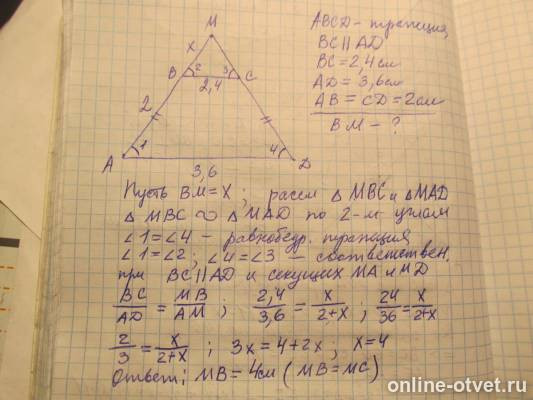 M
x
B 2 3 C
2,4
2
A 1 4 D
3,6
ABCD - трапеция,
BC || AD
BC = 2,4 см
AD = 3,6 см
AB = CD = 2 см
BM - ?
Пусть BM = x; рассм △ MBC и △ MAD
△ MBC ∾ △ MAD по 2-м углам
∠1 = ∠4 - равнобедр. трапеция
∠1 = ∠2; ∠4 = ∠3 - соответствен.
при BC || AD и секущих MA и MD
BC/AD = MB/AM; 2,4/3,6 = x/2+x; 24/36 = x/2+x
2/3 = x/2+x; 3x = 4 + 2x; x = 4
Ответ: MB = 4 см (MB = MC)
online-otvet.ru